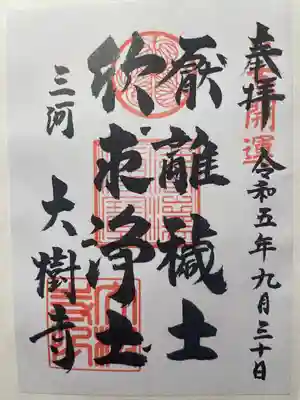 奉拝
開運
令和五年九月三十日
厭離穢土
欣求浄土
三河 大樹寺